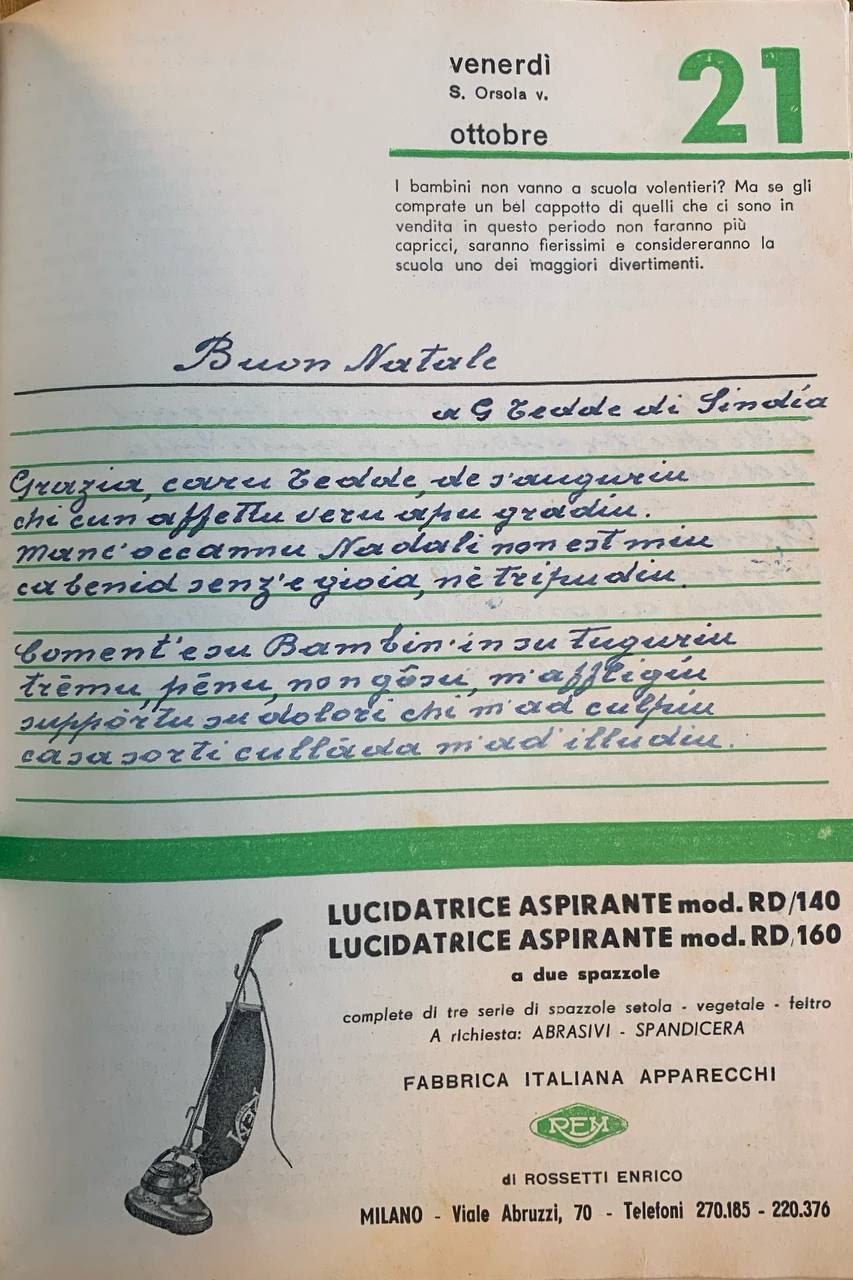 venerdì
S. Orsola v.
ottobre
21
I bambini non vanno a scuola volentieri? Ma se gli
comprate un bel cappotto di quelli che ci sono in
vendita in questo periodo non faranno più
capricci, saranno fierissimi e considereranno la
scuola uno dei maggiori divertimenti.
Buon Natale
a G Tedde di Sindía
Grazia, caru Tedde, de s'auguriu
chi cun affettu veru apu gradiu.
Manc'occannu Nadali non est miu
ca benid senz'e gioia, nè tripudiu.
Coment'e su Bambin·in su tuguriu
trēmu, pēnu, non gôsu, m'affligíu
suppórtu su dolori chi m'ad culpíu
ca sa sorti cullāda m'ad'illudiu.
LUCIDATRICE ASPIRANTE mod. RD/140
LUCIDATRICE ASPIRANTE mod. RD/160
a due spazzole
complete di tre serie di spazzole setola - vegetale - feltro
A richiesta: ABRASIVI - SPANDICERA
FABBRICA ITALIANA APPARECCHI
REM
di ROSSETTI ENRICO
MILANO - Viale Abruzzi, 70 - Telefoni 270.185 - 220.376
REM